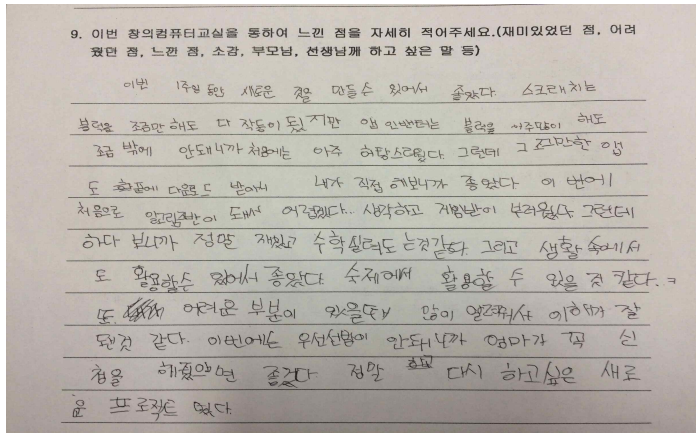 9. 이번 창의컴퓨터교실을 통하여 느낀 점을 자세히 적어주세요.(재미있었던 점, 어려
웠던 점, 느낀 점, 소감, 부모님, 선생님께 하고 싶은 말 등)
이번 1주일 동안 새로운 것을 만들수 있어서 좋았다. 스크래치는
블럭을 조금만 해도 다 작동이 됬지만 앱 인벤터는 블럭을 아주많이 해도
조금 밖에 안돼니까 처음에는 아주 허탕스러웠다. 그런데 그 조그만한 앱
도 폰에 다운로드 받아서 내가 직접 해보니까 좋았다 이 번에
처음으로 알고리즘반이 돼서 어려웠다... 생각하고 게임반이 부러웠다 그런데
하다 보니까 정말 재밌고 수학실력도 는것같다. 그리고 생활 속에서
도 활용할수 있어서 좋았다. 숙제에서 활용할 수 있을 것 같다.
또 어려운 부분이 있을때 많이 알려줘서 이해가 잘
됀것 같다. 이번에는 우선선발이 안돼니까 엄마가 꼭 신
청을 해줬으면 좋겠다 정말 다시 하고싶은 새로
운 프로젝트 였다.